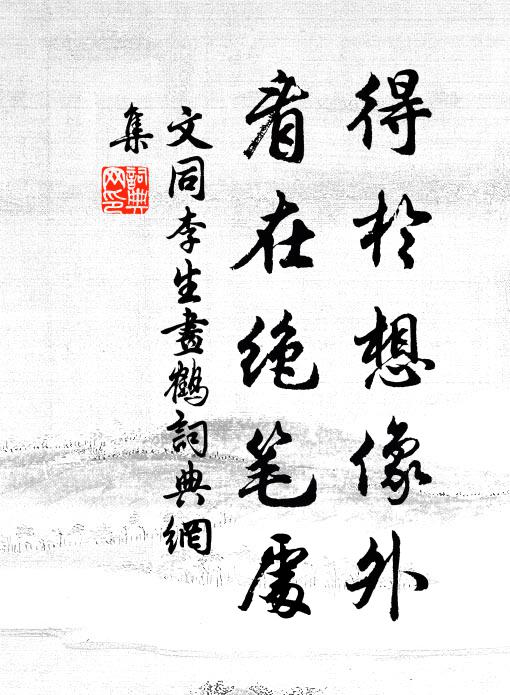 得於想像外
看在绝笔處
文同李生畫鶴詞典網
集
詞典網印